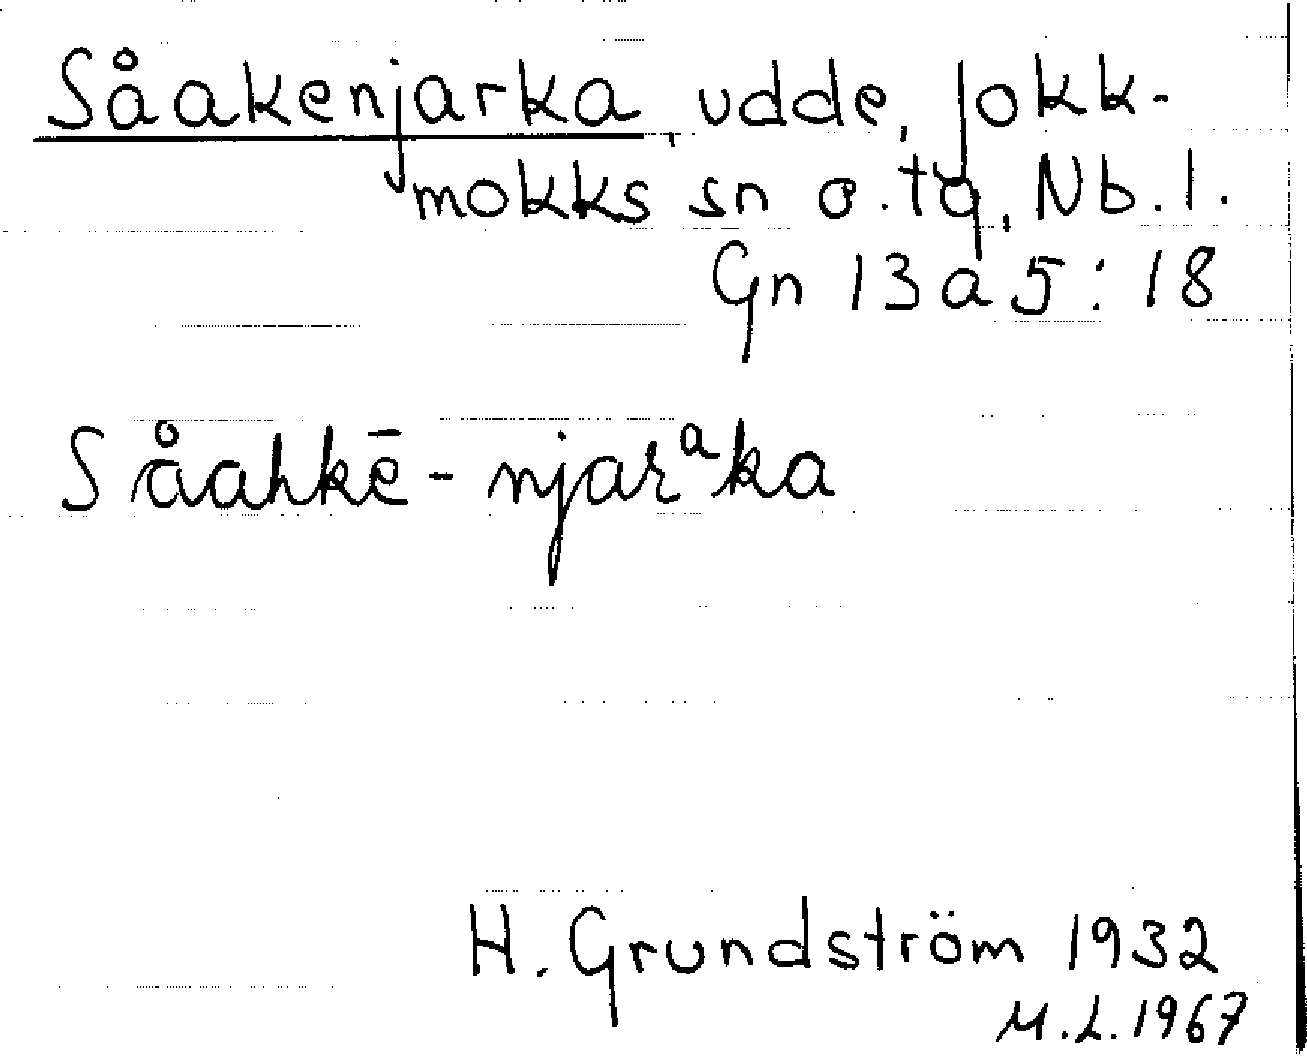 Såakenjarka, udde, Jokk-
mokks sn o. tg, Nb. l.
Gn 13 a 5 : 18
Såahkē - njarᵃka
H. Grundström 1932
M.L. 1967